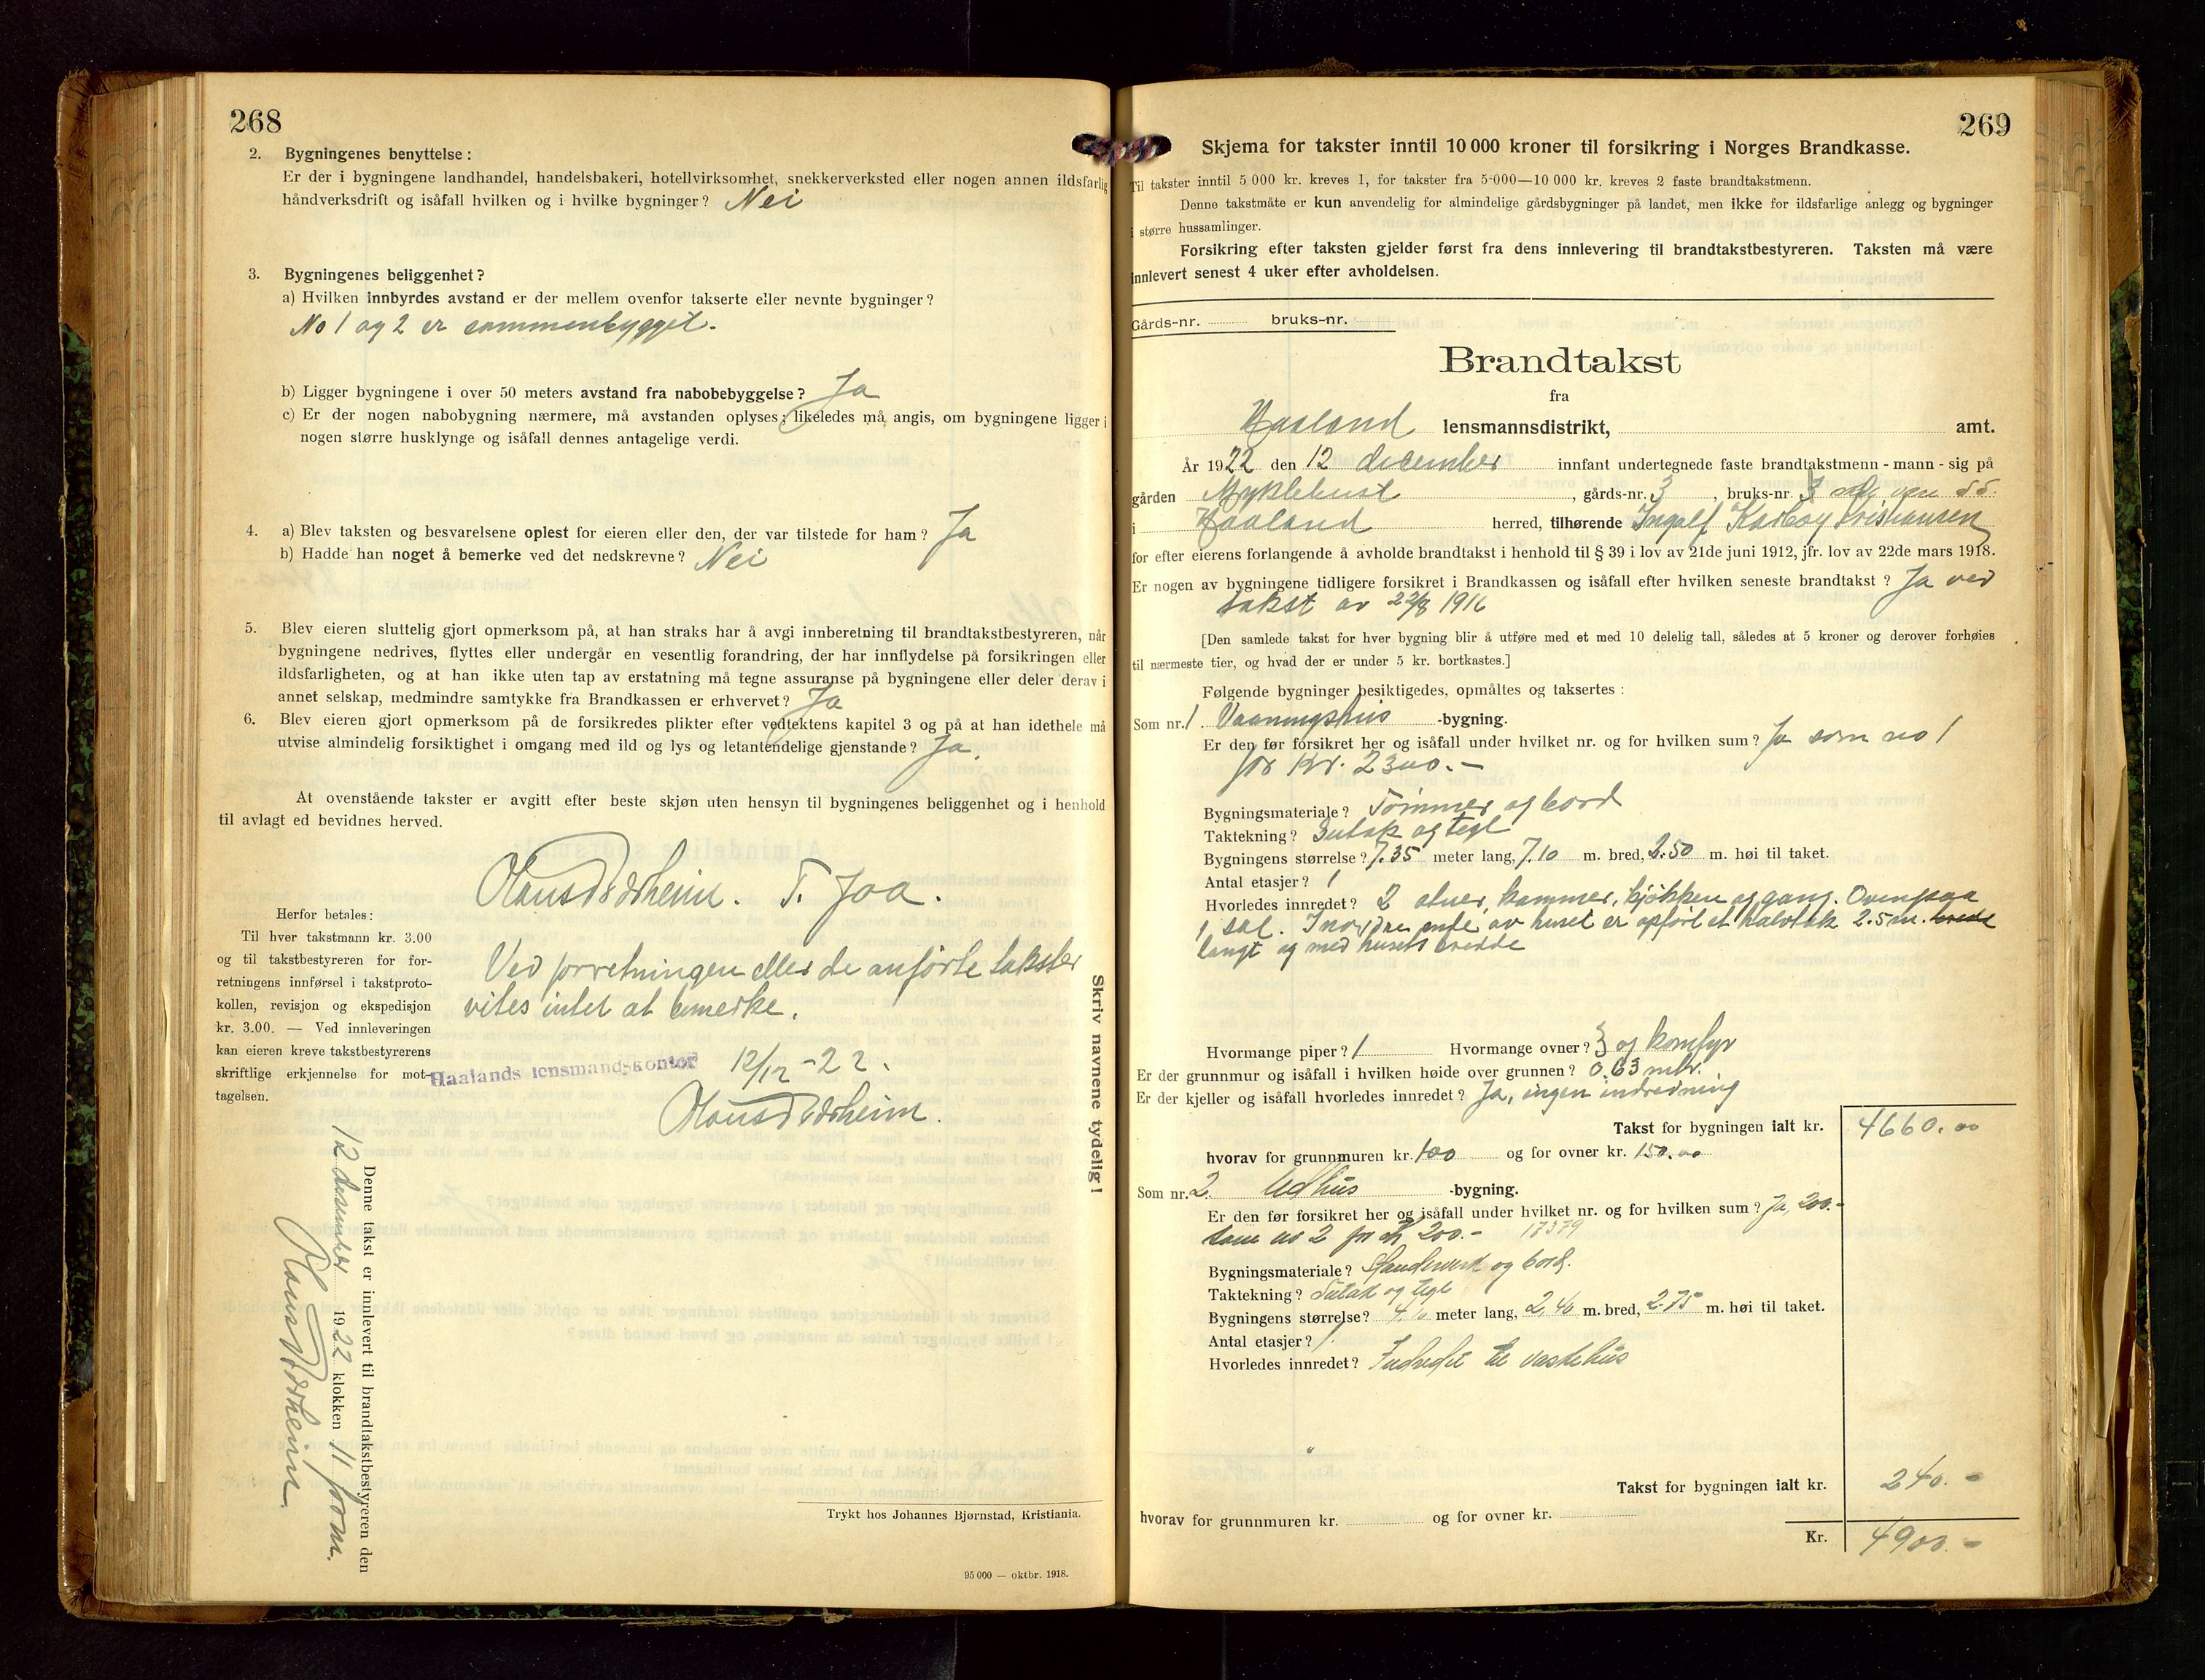 268
2. Bygningenes benyttelse:
Er der i bygningene landhandel, handelsbakeri, hotellvirksomhet, snekkerverksted eller nogen annen ildsfarlig
håndverksdrift og isåfall hvilken og i hvilke bygninger? Nei
3. Bygningenes beliggenhet?
a) Hvilken innbyrdes avstand er der mellem ovenfor takserte eller nevnte bygninger?
No 1 og 2 er sammenbygget.
b) Ligger bygningene i over 50 meters avstand fra nabobebyggelse? Ja
c) Er der nogen nabobygning nærmere, må avstanden oplyses; likeledes må angis, om bygningene ligger i
nogen større husklynge og isåfall dennes antagelige verdi.
4. a) Blev taksten og besvarelsene oplest for eieren eller den, der var tilstede for ham? Ja
b) Hadde han noget å bemerke ved det nedskrevne? Nei
5. Blev eieren sluttelig gjort opmerksom på, at han straks har å avgi innberetning til brandtakstbestyreren, når
bygningene nedrives, flyttes eller undergår en vesentlig forandring, der har innflydelse på forsikringen eller
ildsfarligheten, og at han ikke uten tap av erstatning må tegne assuranse på bygningene eller deler derav i
annet selskap, medmindre samtykke fra Brandkassen er erhvervet? Ja
6. Blev eieren gjort opmerksom på de forsikredes plikter efter vedtektens kapitel 3 og på at han idethele må
utvise almindelig forsiktighet i omgang med ild og lys og letantendelige gjenstande? Ja.
At ovenstående takster er avgitt efter beste skjøn uten hensyn til bygningenes beliggenhet og i henhold
til avlagt ed bevidnes herved.
T. Joa.
Herfor betales:
Til hver takstmann kr. 3.00
og til takstbestyreren for for-
retningens innførsel i takstproto-
kollen, revisjon og ekspedisjon
kr. 3.00. — Ved innleveringen
kan eieren kreve takstbestyrerens
skriftlige erkjennelse for mot-
tagelsen.
Ved forretningen eller de anførte takster
vites intet at bemerke.
Haalands lensmandskontor 12/12 - 22.
Denne takst er innlevert til brandtakstbestyreren den
12 desember 1922 klokken 11 form.
Skriv navnene tydelig!
Trykt hos Johannes Bjørnstad, Kristiania.
95 000 — oktbr. 1918.
269
Skjema for takster inntil 10 000 kroner til forsikring i Norges Brandkasse.
Til takster inntil 5 000 kr. kreves 1, for takster fra 5 000—10 000 kr. kreves 2 faste brandtakstmenn.
Denne takstmåte er kun anvendelig for almindelige gårdsbygninger på landet, men ikke for ildsfarlige anlegg og bygninger
i større hussamlinger.
Forsikring efter taksten gjelder først fra dens innlevering til brandtakstbestyreren. Taksten må være
innlevert senest 4 uker efter avholdelsen.
Gårds-nr. bruks-nr.
Brandtakst
fra
Haaland lensmannsdistrikt, amt.
År 1922 den 12 december innfant undertegnede faste brandtakstmenn - mann - sig på
gården Myklebust, gårds-nr. 3, bruks-nr. 3
i Haaland herred, tilhørende Ingolf
for efter eierens forlangende å avholde brandtakst i henhold til § 39 i lov av 21de juni 1912, jfr. lov av 22de mars 1918.
Er nogen av bygningene tidligere forsikret i Brandkassen og isåfall efter hvilken seneste brandtakst? Ja ved
takst av 22/8 1916
[Den samlede takst for hver bygning blir å utføre med et med 10 delelig tall, således at 5 kroner og derover forhøies
til nærmeste tier, og hvad der er under 5 kr. bortkastes.]
Følgende bygninger besiktigedes, opmåltes og taksertes:
Som nr. 1. Vaaningshus -bygning.
Er den før forsikret her og isåfall under hvilket nr. og for hvilken sum? Ja som no 1
for Kr. 2300.-
Bygningsmateriale? Tømmer og bord
Taktekning? Sutak og tegl
Bygningens størrelse? 7.35 meter lang, 7.10 m. bred, 2.50 m. høi til taket.
Antal etasjer? 1
Hvorledes innredet? 2 stuer, kammer, kjøkken og gang. Ovenpaa
1 sal. I nordre ende av huset er opført et halvtak 2.5 m. brede
langt og med husets bredde
Hvormange piper? 1 Hvormange ovner? 3 og komfyr
Er der grunnmur og isåfall i hvilken høide over grunnen? 0.63 mtr.
Er der kjeller og isåfall hvorledes innredet? Ja, ingen indredning
Takst for bygningen ialt kr. 4660.00
hvorav for grunnmuren kr. 100 og for ovner kr. 150.00
Som nr. 2. Udhus -bygning.
Er den før forsikret her og isåfall under hvilket nr. og for hvilken sum? Ja, 200.-
som no 2 for kr 200.- 17379
Bygningsmateriale? Standerverk og bord.
Taktekning? Sutak og tegl
Bygningens størrelse? meter lang, 2,40 m. bred, 2.75 m. høi til taket.
Antal etasjer? 1
Hvorledes innredet? Indredet til vaskehus
Takst for bygningen ialt kr. 240.-
hvorav for grunnmuren kr. og for ovner kr.
Kr. 4900.-